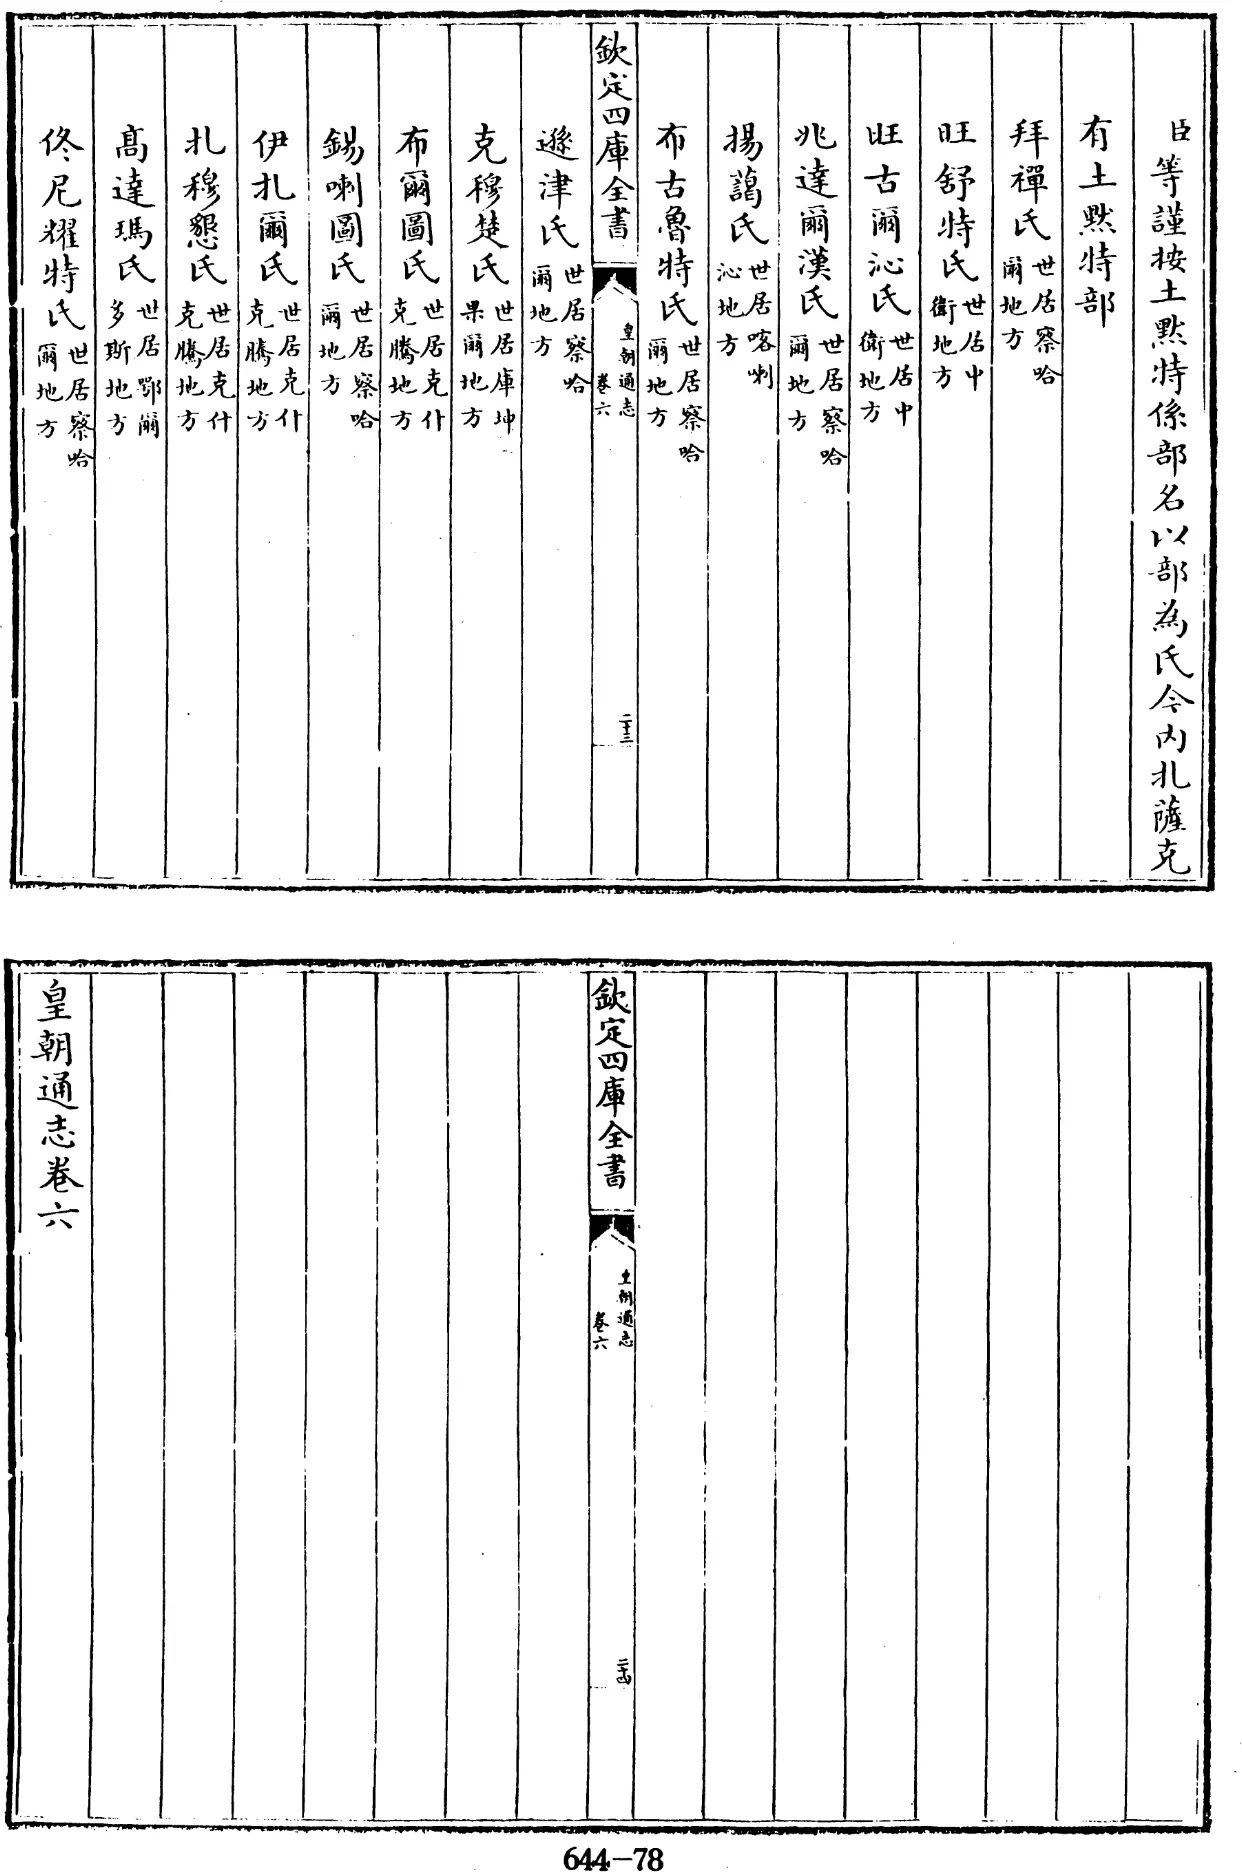 臣等謹按土黙特係部名以部為氏今內扎薩克
有土黙特部
拜禪氏世居察哈爾地方
旺舒特氏世居中衛地方
旺古爾沁氏世居中衛地方
兆達爾漢氏世居察哈爾地方
揚藹氏世居喀喇沁地方
布古魯特氏世居察哈爾地方
欽定四庫全書
皇朝通志
卷六
二十三
遜津氏世居察哈爾地方
克穆楚氏世居庫坤果爾地方
布爾圖氏世居克什克騰地方
錫喇圖氏世居察哈爾地方
伊扎爾氏世居克什克騰地方
扎穆懇氏世居克什克騰地方
髙達瑪氏世居鄂爾多斯地方
佟尼耀特氏世居察哈爾地方
欽定四庫全書
皇朝通志
卷六
二十四
皇朝通志卷六
644-78